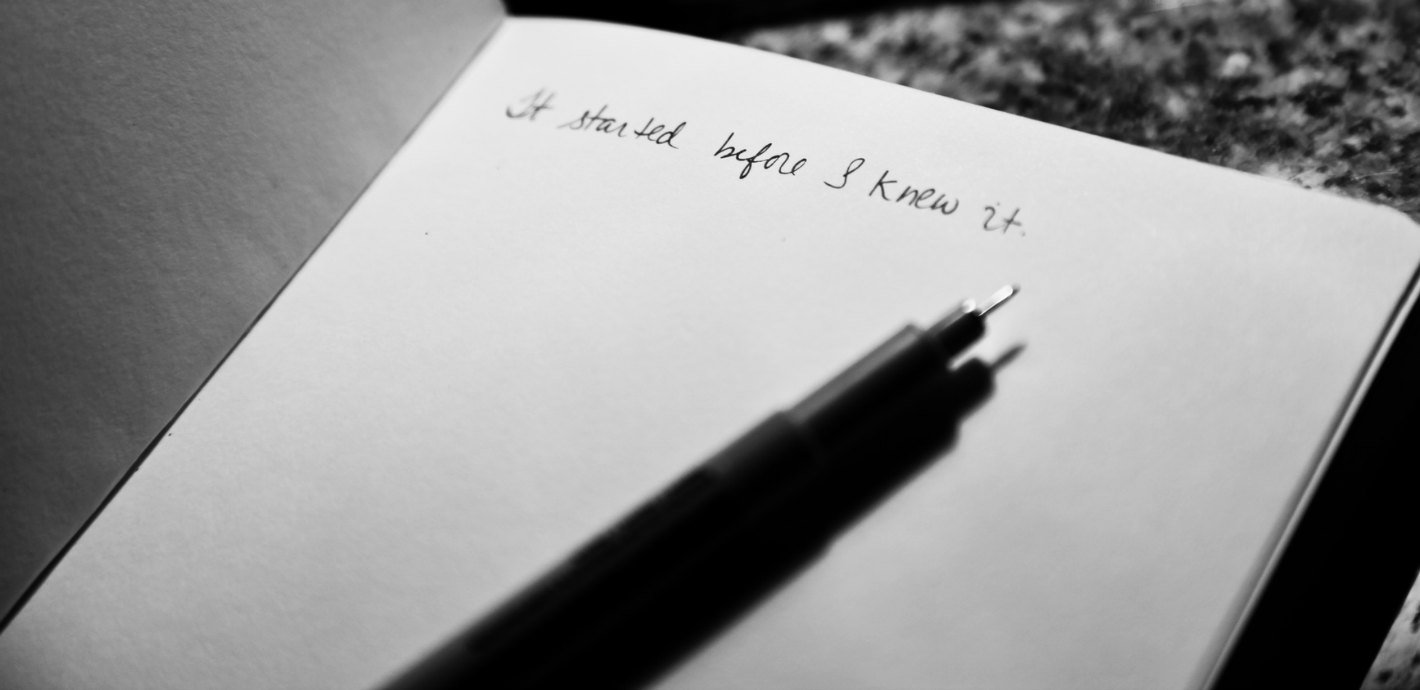 It started before I knew it.